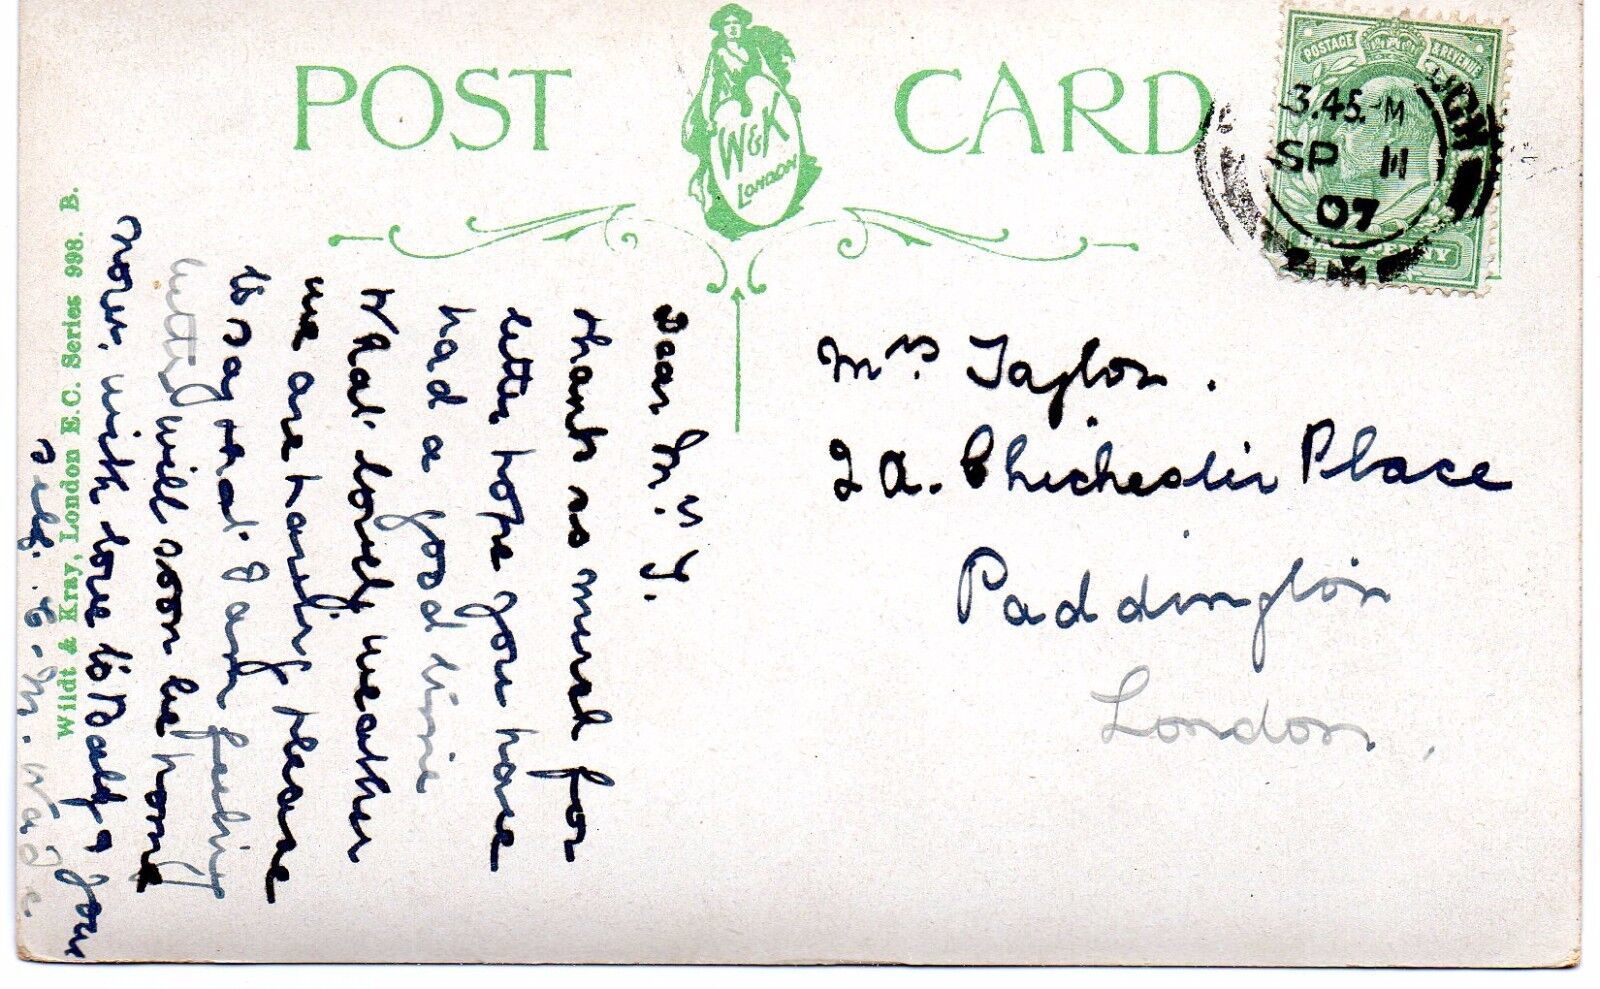 POST CARD
W & K
LONDON
POSTAGE & REVENUE
3.45. M
SP 11
07
Mrs. Taylor.
2A. Chichester Place
Paddington
London.
Dear Mrs T.
thanks so much for
letter, hope you have
had a good time
What lovely weather
we are having please
to say that I am feeling
better will soon be home
now, with love to &  your
self. M. Wade.
Wildt & Kray, London E.C. Series 998. B.